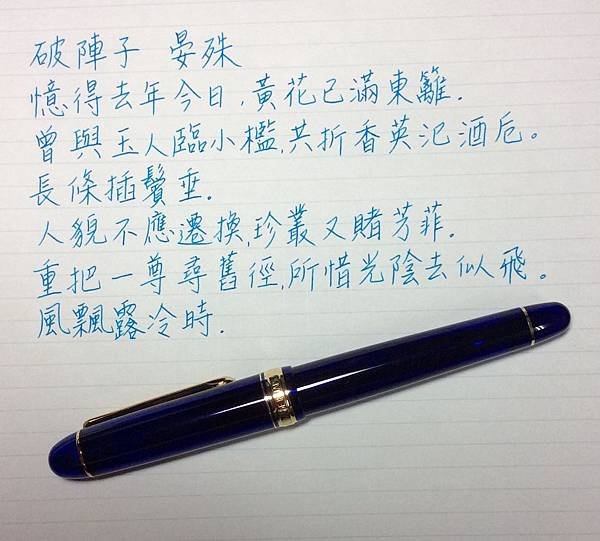 破陣子 晏殊
憶得去年今日,黃花已滿東籬.
曾與玉人臨小檻,共折香英泛酒卮。
長條插鬢垂.
人貌不應遷換,珍叢又賭芳菲.
重把一尊尋舊徑,所惜光陰去似飛。
風飄露冷時.